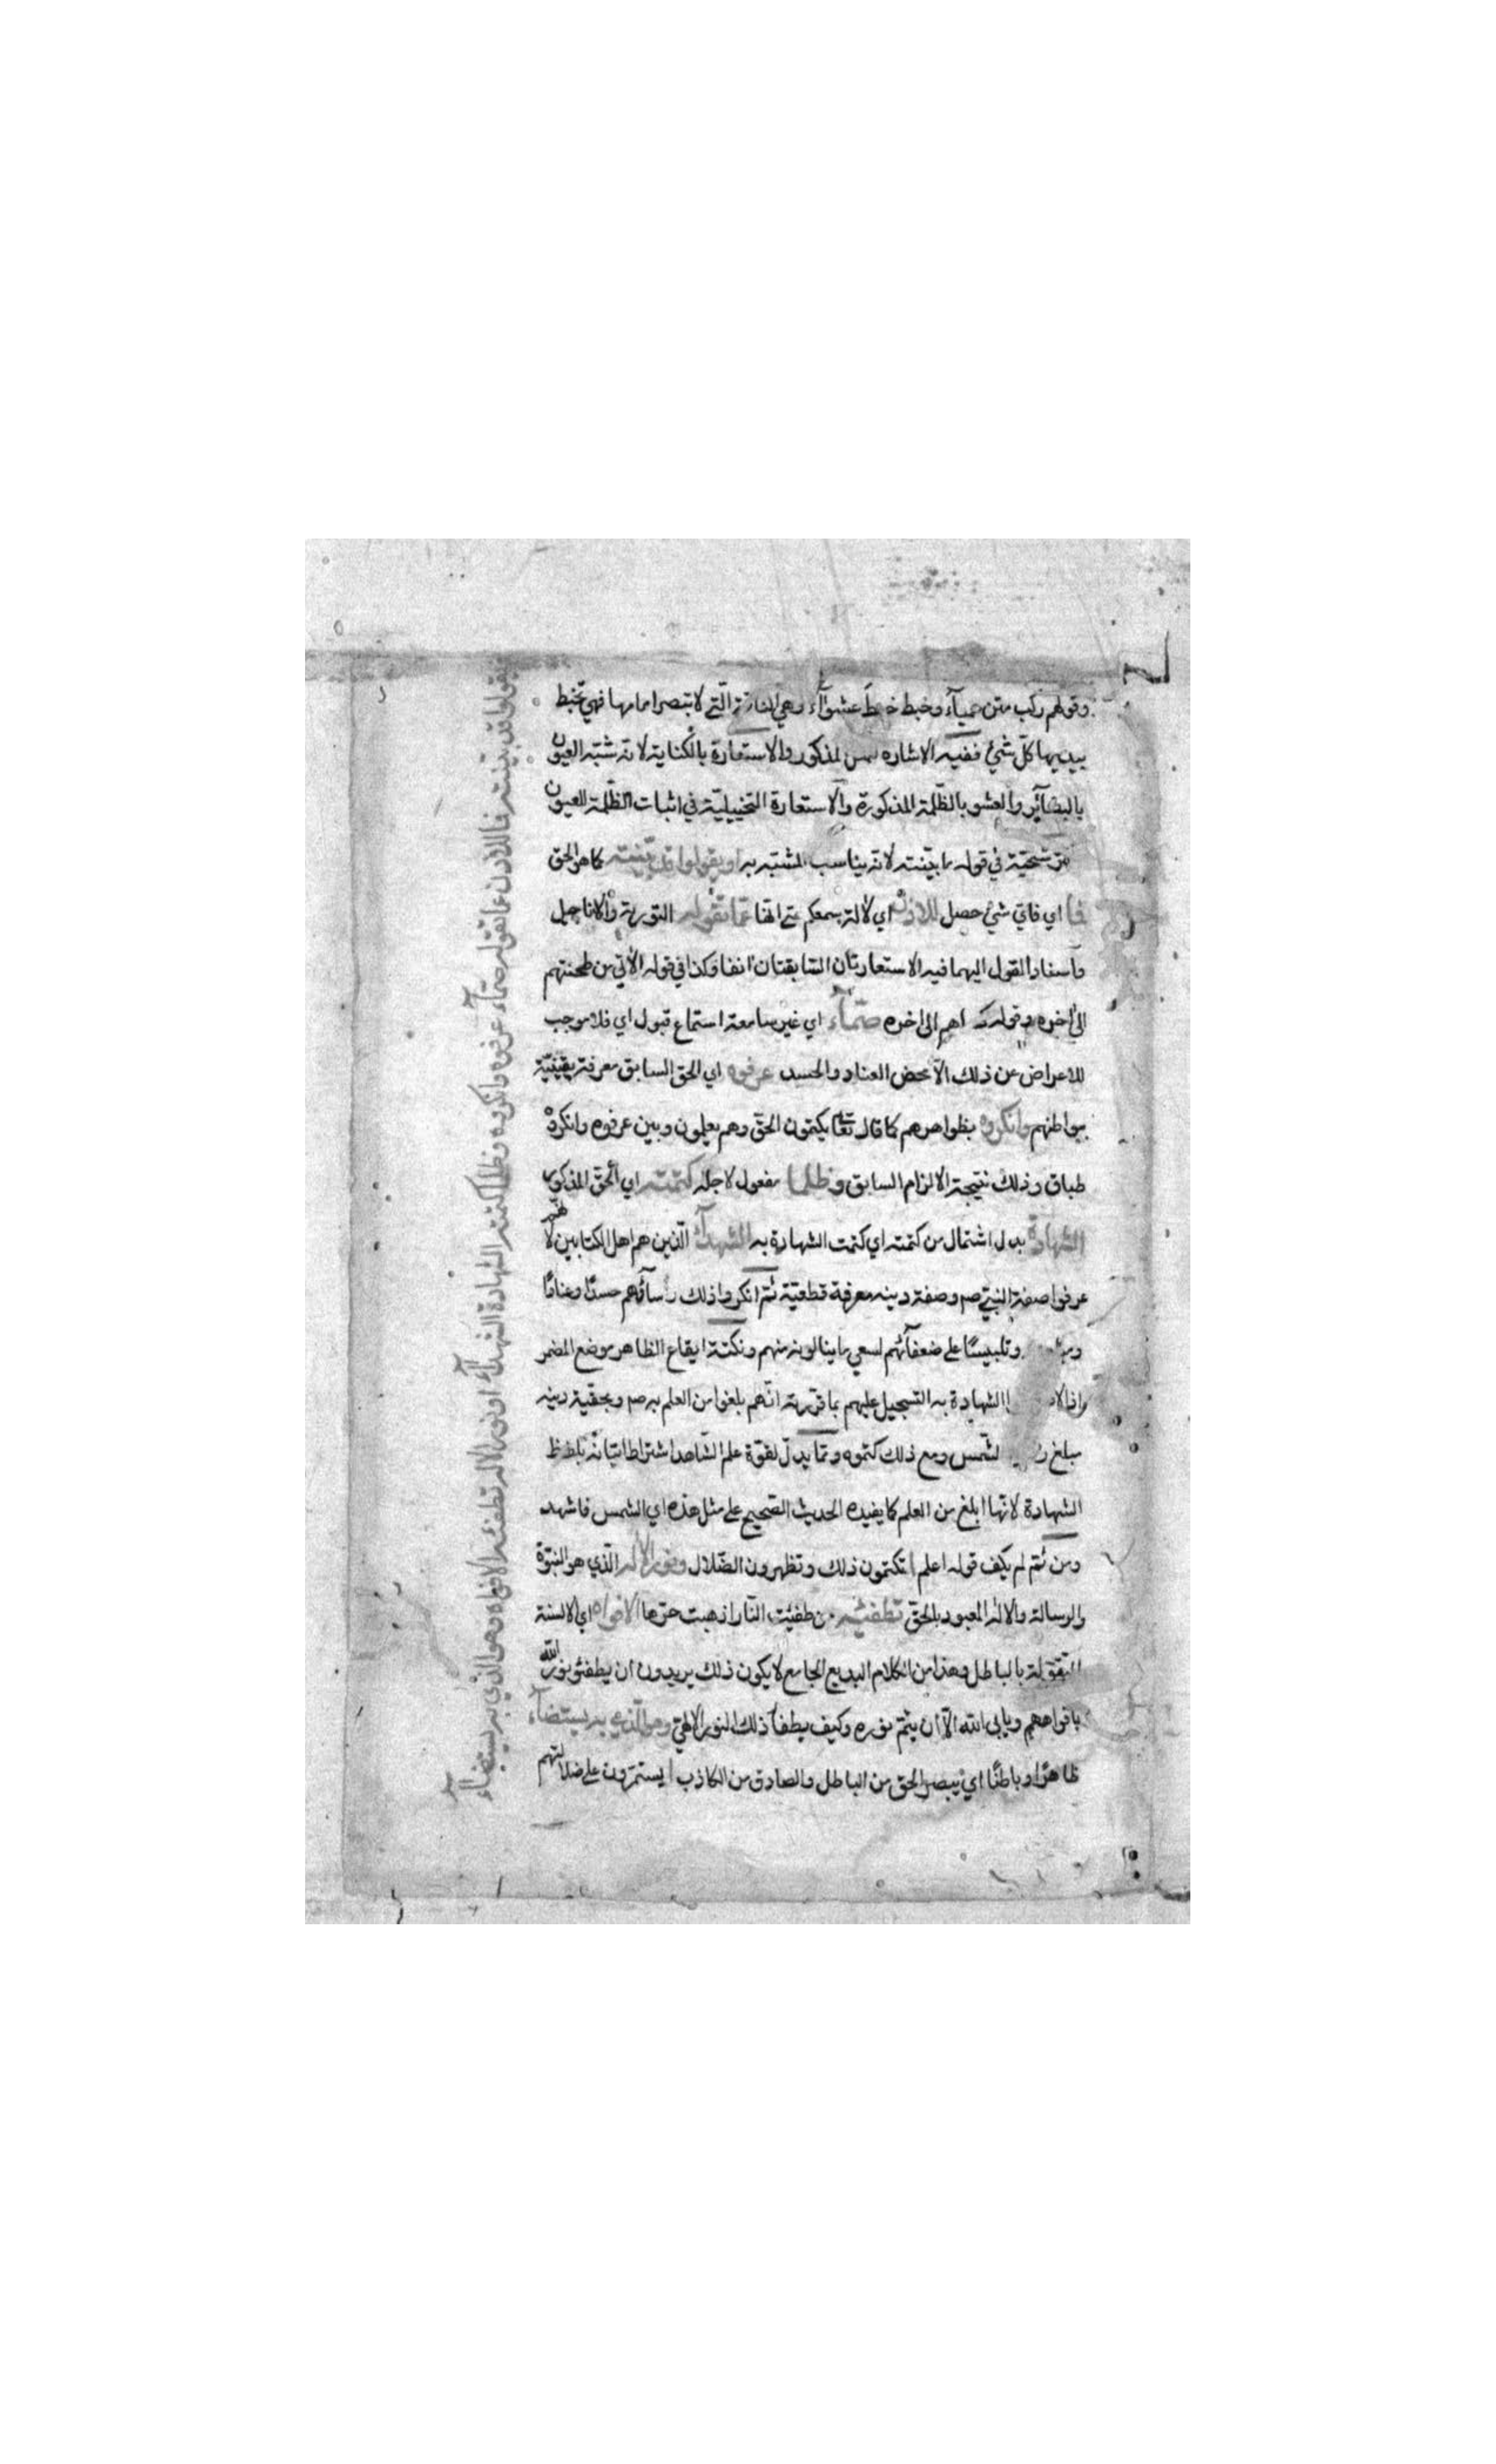 وقولهم ركب متن عمياء وخبط خبط عشوآء وهي الناقة الّتي لا تبصر امامها فهي تخبط
بيديها كلّ شئ ففيه الاشاره لمن المذكور والاستعارة بالكناية لانه شبّه العيون
بالبصآئر والعشو بالظّلمة المذكورة والاستعارة التخييليّة في اثبات الظّلمة للعيون
شحيّة في قوله ما بيّنته لانه يناسب المشبّه به او يقولوا قد بيّنته كما هو الحق
فما اي فايّ شئ حصل للاذن اي لآلة سمعكم حتى انها عمّا تقوله التورية والاناجيل
واسناد القول اليهما فيه الاستعارتان السّابقتان انفا وكذا في قوله الآتي من طحنتهم
الى اخره وقوله اهم الى اخره صمّآء اي غير سامعة استماع قبول اي فلا موجب
للاعراض عن ذلك الّا محض العناد والحسد عرفوه اي الحق السابق معرفة يقينيّة
ببواطنهم وانكروه بظواهرهم كما قال تعا يكتمون الحقّ وهم يعلمون وبين عرفوه وانكروه
طباق وذلك نتيجة الالزام السابق وظلما مفعول لاجله كتمته اي الحقّ المذكور
الشهادة بدل اشتمال من كتمته اي كتمت الشهادة به الشهدآء الّذين هم اهل الكتابين لانّهم
عرفوا صفة النبيّ صم وصفة دينه معرفة قطعيّة ثمّ انكروا ذلك رأسآؤهم حسدًا وعنادًا
وتلبيسًا على ضعفآئهم لسعي ما ينالونه منهم ونكتة ايقاع الظاهر موضع المضمر
الشهادة به التسجيل عليهم بما قرّرته انّهم بلغوا من العلم به صم وبحقّية دينه
مبلغ الشّمس ومع ذلك كتموه وممّا يدلّ لقوّة علم الشّاهد اشتراط اتيانه بلفظ
الشهادة لانّها ابلغ من العلم كما يفيده الحديث الصّحيح على مثل هذه اي الشمس فاشهد
ومن ثمّ لم يكف قوله اعلم أتكتمون ذلك وتظهرون الضّلال ونور الاله الّذي هو النبوّة
والرسالة والاله المعبود بالحقّ تطفئه من طفيت النّار اذهبت حرّها الافواه اي الالسنة
المتقوّلة بالباطل وهذا من الكلام البديع الجامع لا يكون ذلك يريدون ان يطفئو نور اللّه
بافواههم ويابى اللّه الّا ان يتمّ نوره وكيف يطفأ ذلك النور الالهيّ وهو الّذي به يستضآء
ظاهرًا وباطنًا اي يبصر الحق من الباطل والصادق من الكاذب أيستمرّون على ضلالتهم
يقولوا قد بيّنته فما للاذن عمّا تقوله صمّآء عرفوه وانكروه وظلما كتمته الشهادة الشهدآء اونور الاله تطفئه الافواه وهو الذي به يستضآء